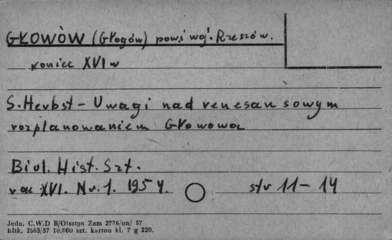 GŁOWÓW (Głogów) pow. woj. Rzeszów.
koniec XVI w
S. Herbst - Uwagi nad renesansowym
rozplanowaniem Głowowa
Biul. Hist. Szt.
rok XVI. Nr. 1. 1954. str 11-14
Jedn. C.W.D B/Olsztyn Zam 2776/on/ 57
hitk. 2563/57 10.000 szt. karton kl. 7 g 220.